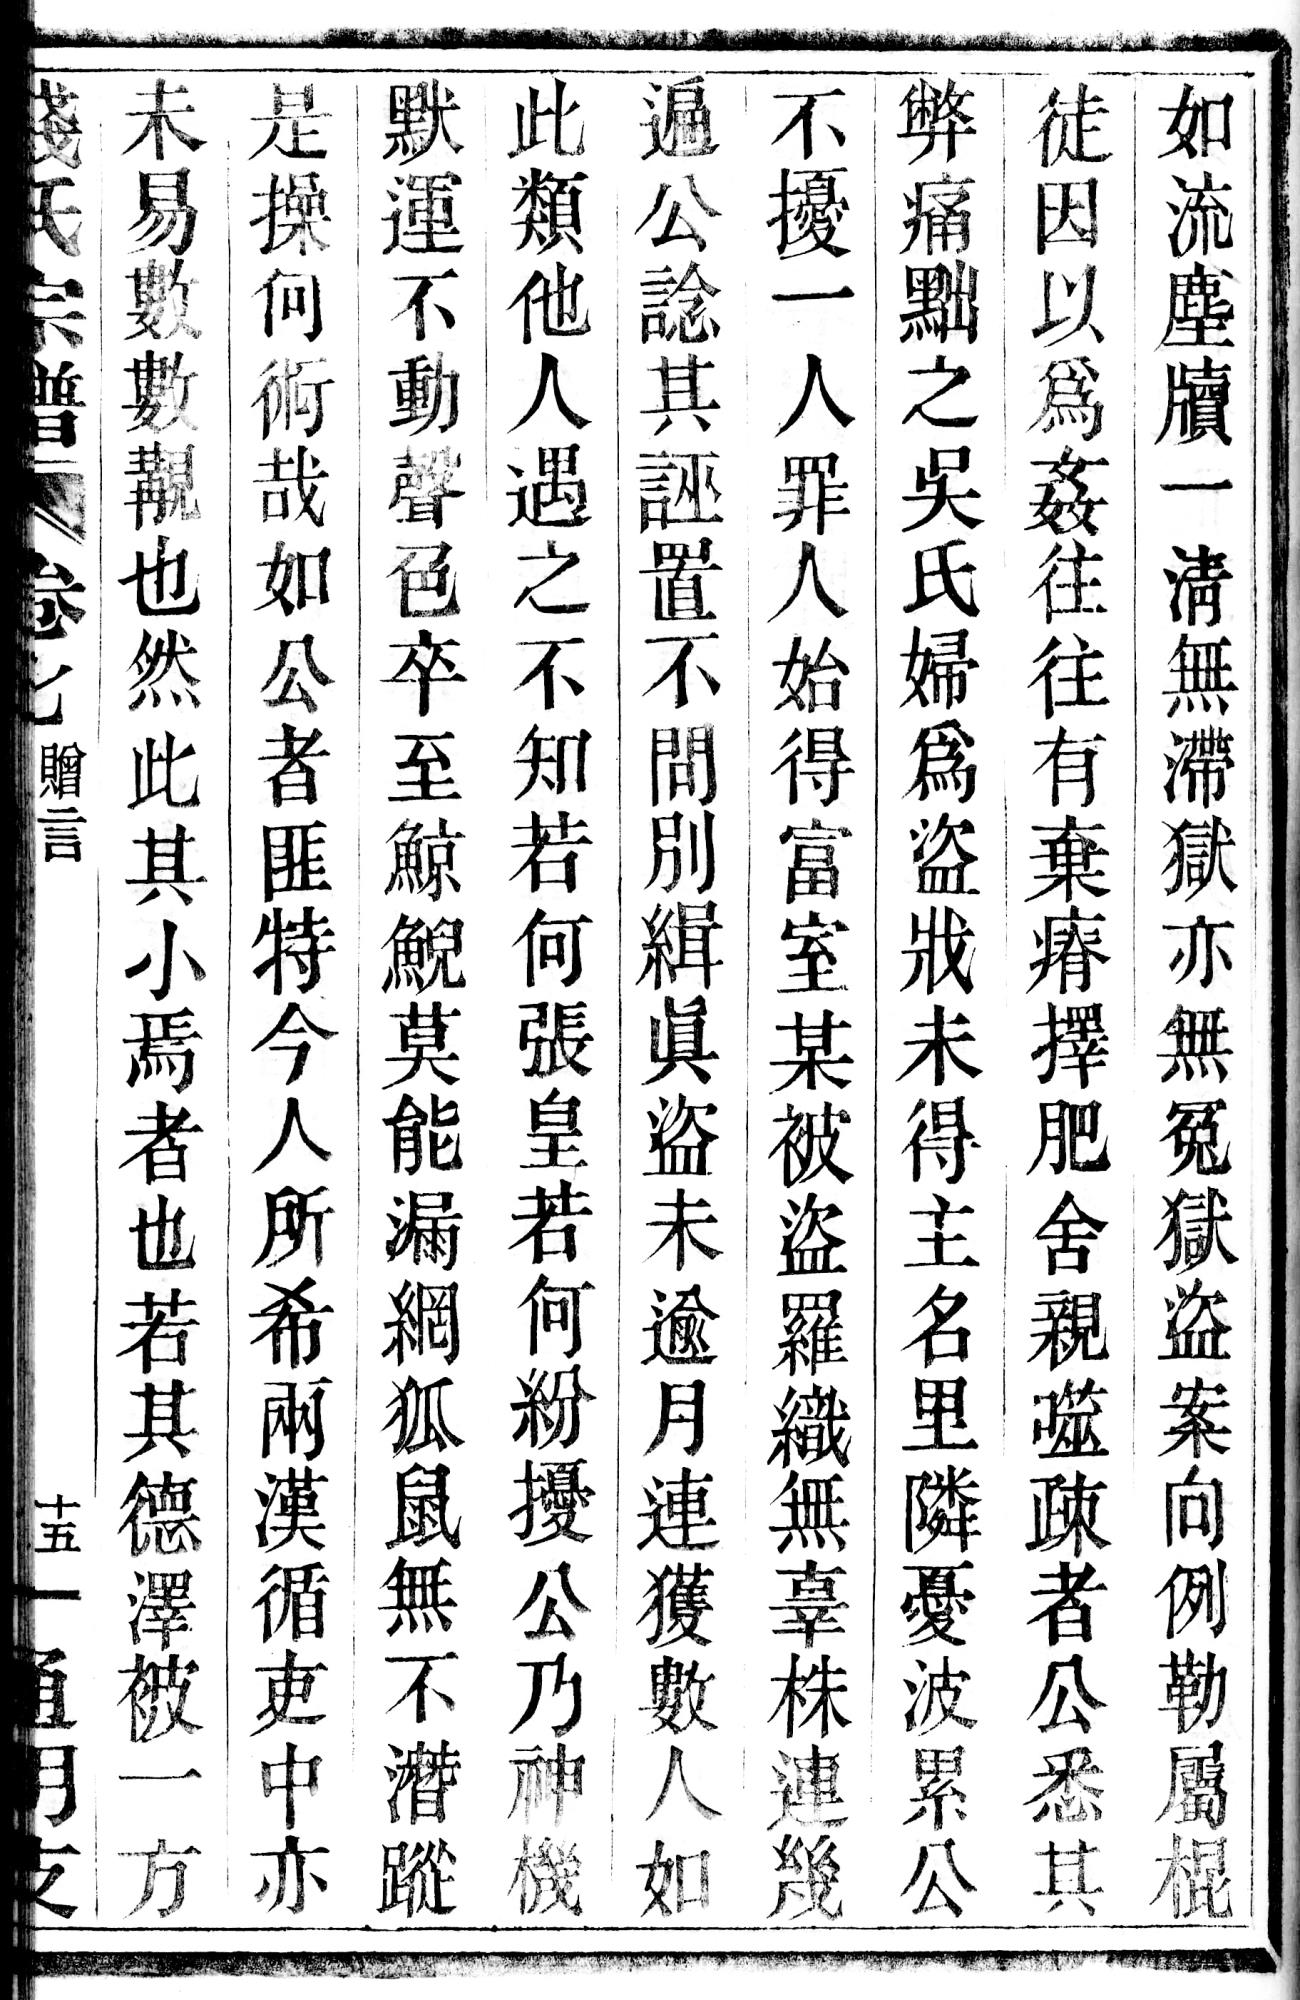 如流塵牘一淸無滯獄亦無冤獄盜案向例勒屬棍
徒因以爲姦往往有棄瘠擇肥舍親噬疎者公悉其
弊痛黜之吳氏婦爲盜戕未得主名里隣憂波累公
不擾一人罪人始得富室某被盜羅織無辜株連幾
遍公諗其誣置不問別緝眞盜未逾月連獲數人如
此類他人遇之不知若何張皇若何紛擾公乃神機
默運不動聲色卒至鯨鯢莫能漏網狐鼠無不潛蹤
是操何術哉如公者匪特今人所希兩漢循吏中亦
未易數數覯也然此其小焉者也若其德澤被一方
錢氏宗譜 卷七 贈言 十五 通明支